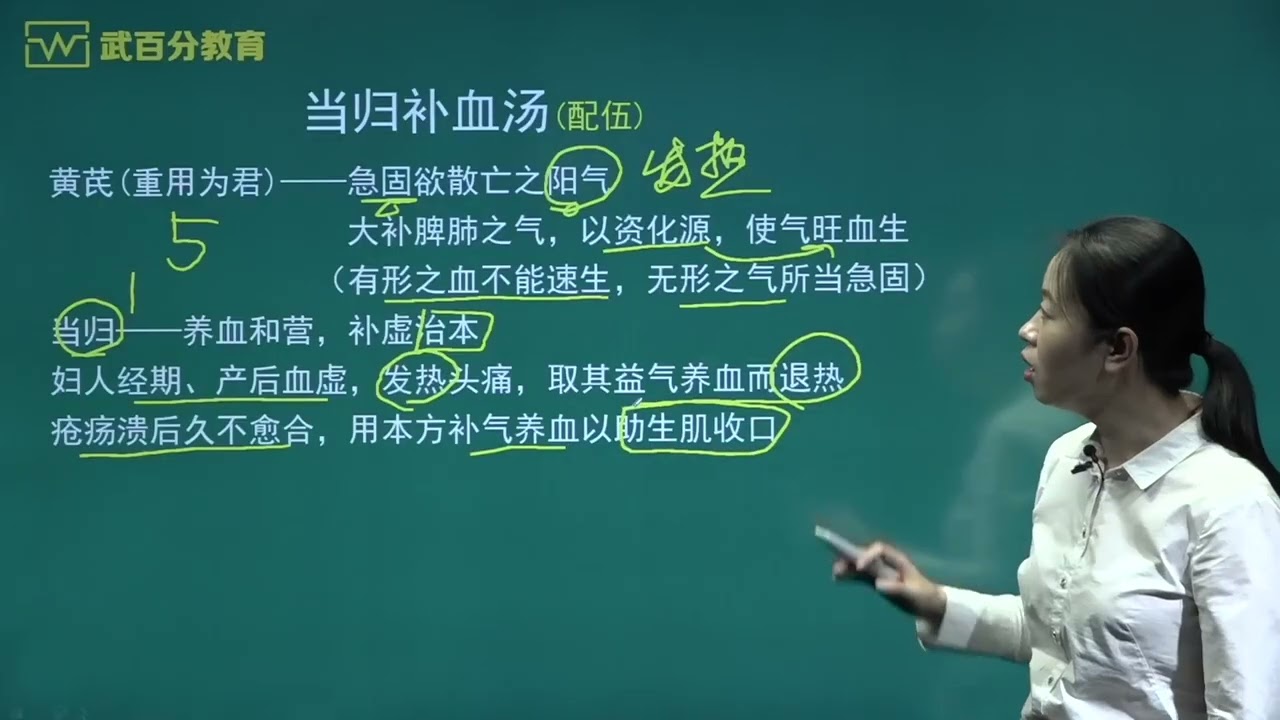 武百分教育
当归补血汤(配伍)
黄芪(重用为君)——急固欲散亡之阳气 发热
5
大补脾肺之气，以资化源，使气旺血生
(有形之血不能速生，无形之气所当急固)
1
当归——养血和营，补虚治本
妇人经期、产后血虚，发热头痛，取其益气养血而退热
疮疡溃后久不愈合，用本方补气养血以助生肌收口